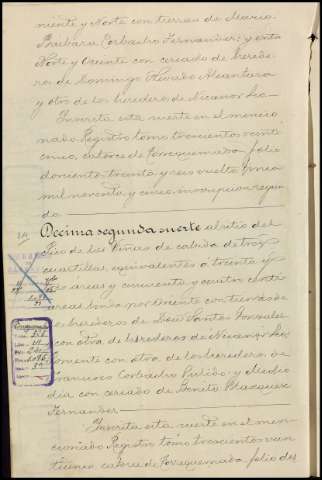 niente y Norte con tierras de Maria
Barbara Corbacho Fernandez; y esta
Norte y Oriente con cercado de herede
ros de Domingo Alvado Alcantara
y otro de los herederos de Nicanor
Inscrita esta suerte en el mencio
nado Registro tomo trescientos veinte
cinco, catorce de Torrequemada folio
doscientos treinta y seis vuelto finca
mil noventa y cinco, inscripcion segun
da
Decima segunda suerte al sitio del
de las Viñas de cabida de tres
cuartillas, equivalentes á treinta y
dos áreas y cincuenta y cuatro centi
áreas; linda por Oriente con tierras de
herederos de Don Santos Gonzalez
con otra de herederos de Nicanor
Poniente con otra de los herederos de
Francisco Corbacho Pulido y Medio
dia con cercado de Benito Blazquez
Fernandez
Inscrita esta suerte en el men
cionado Registro tomo trescientos vein
ticinco, catorce de Torrequemada folio dos